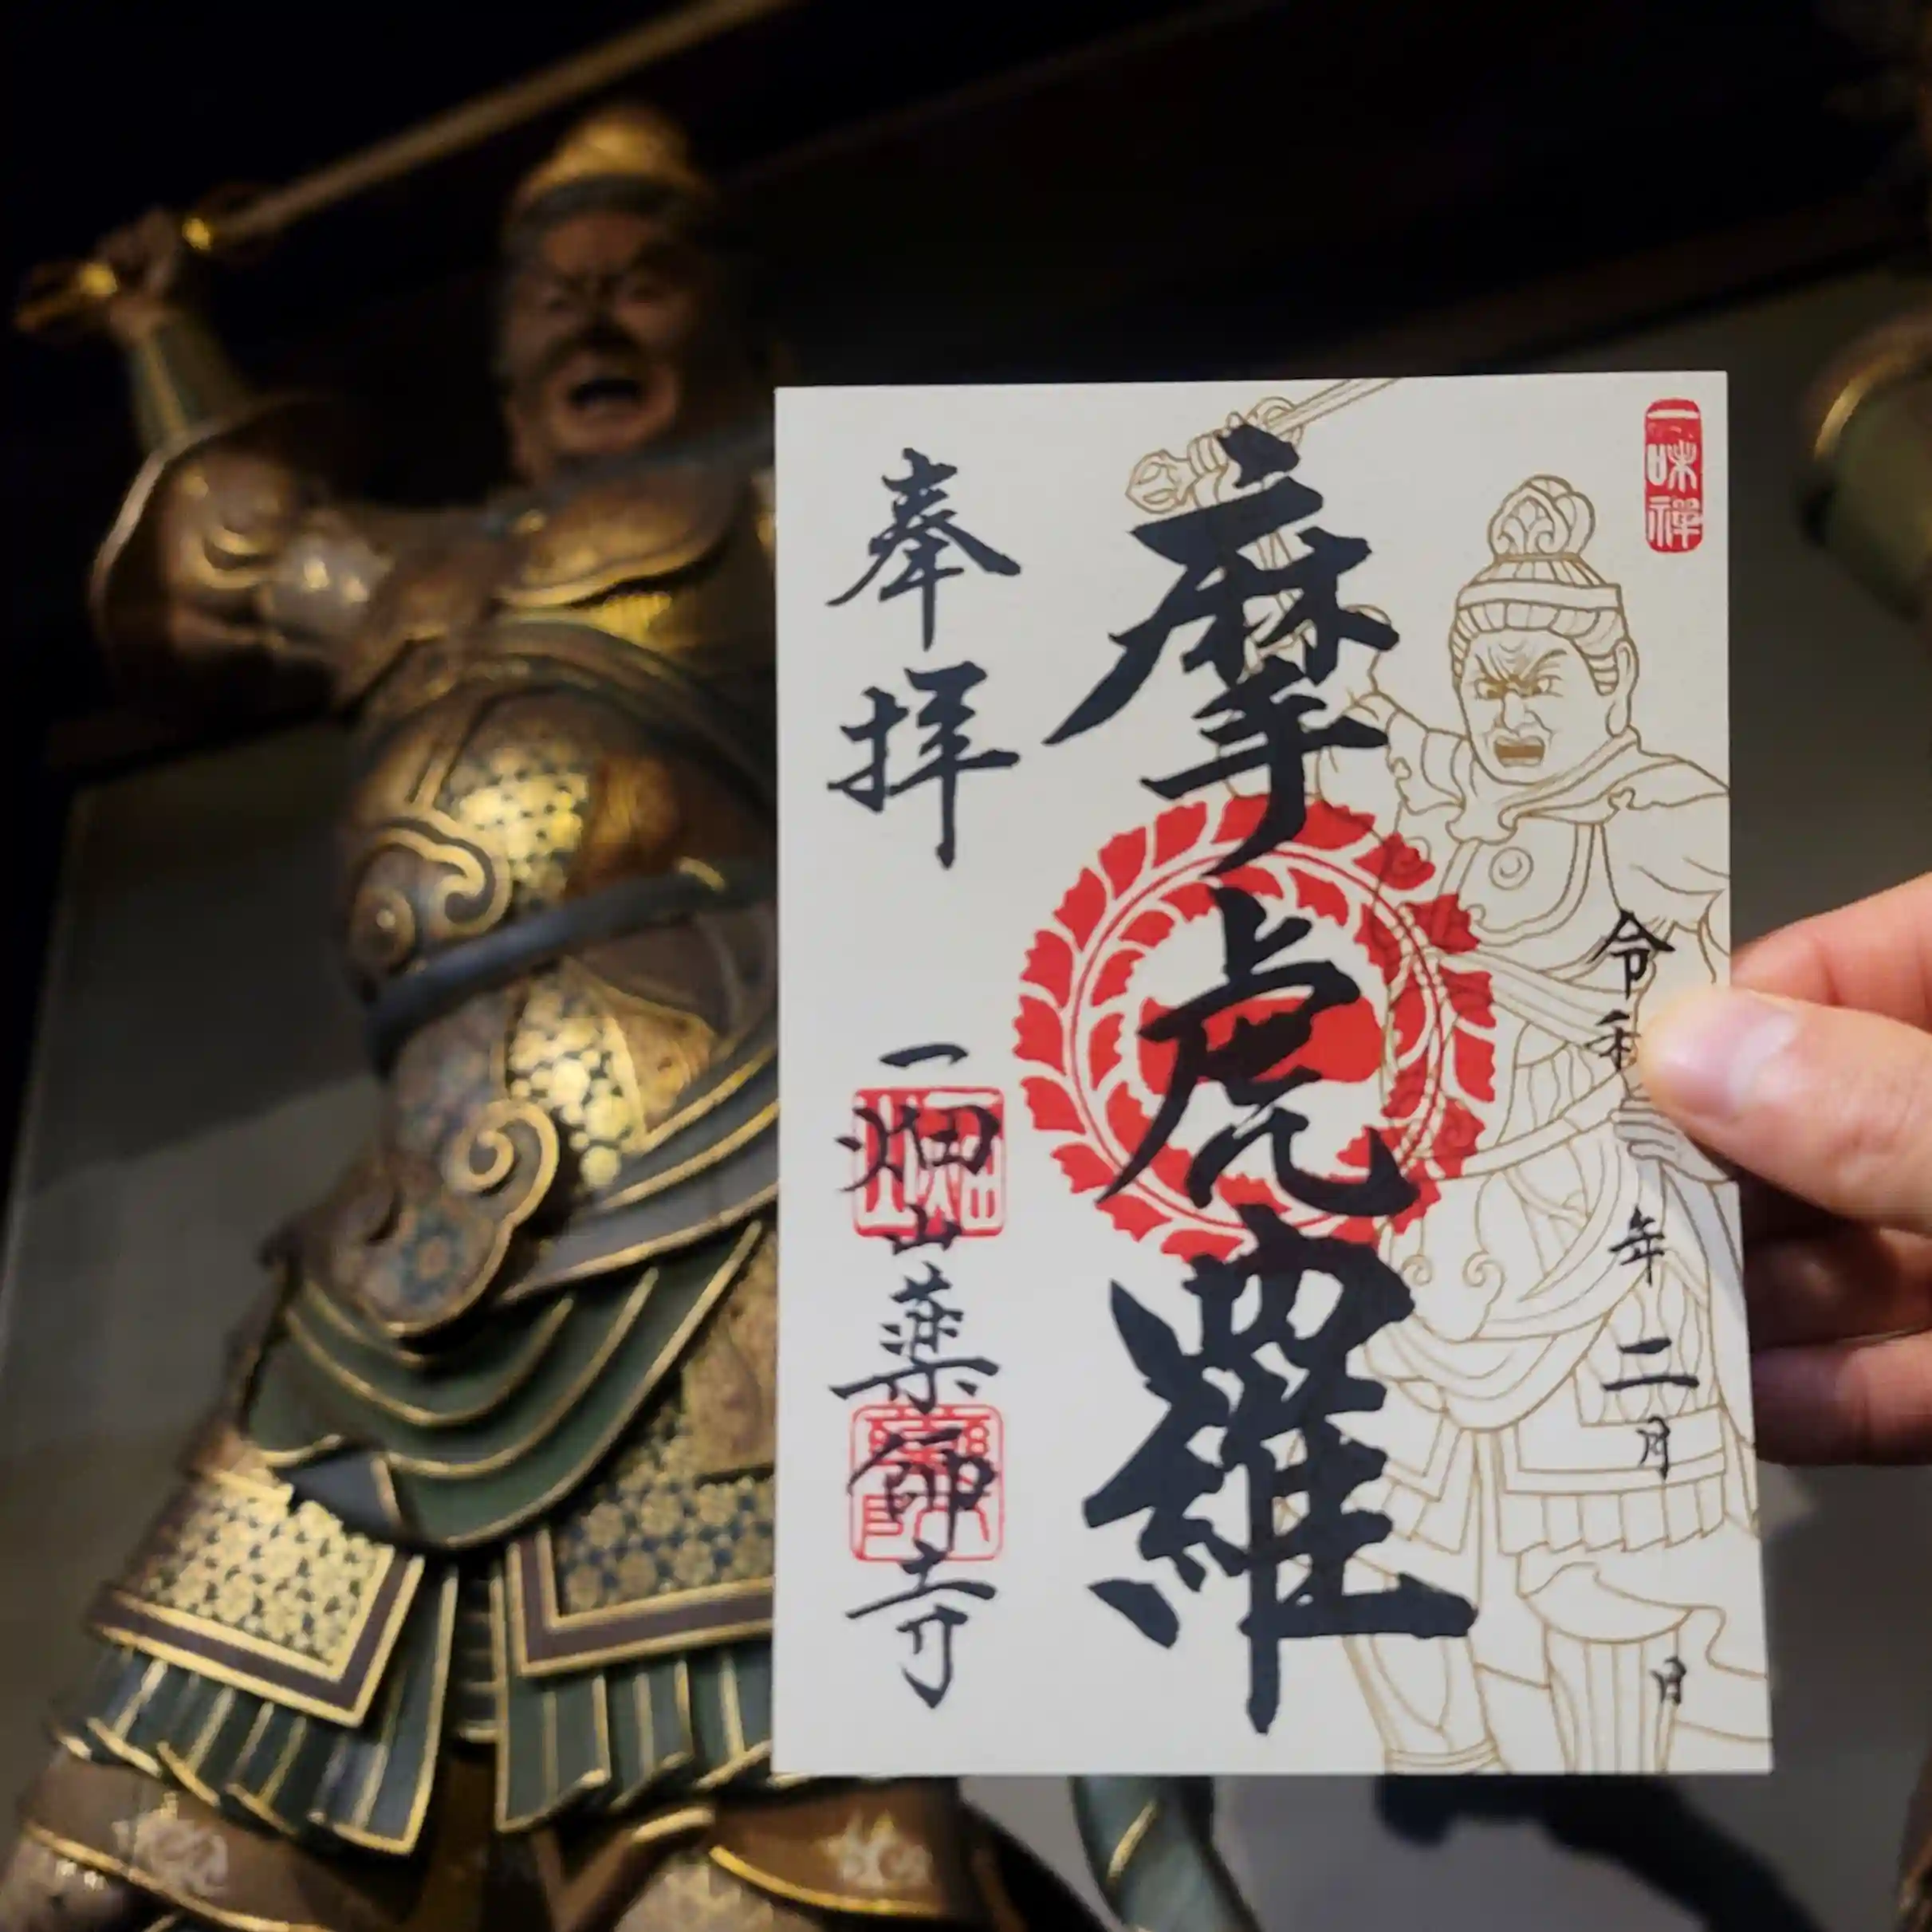 一味禅
令和 年 二月 日
摩虎羅
奉拝 一畑山薬師寺